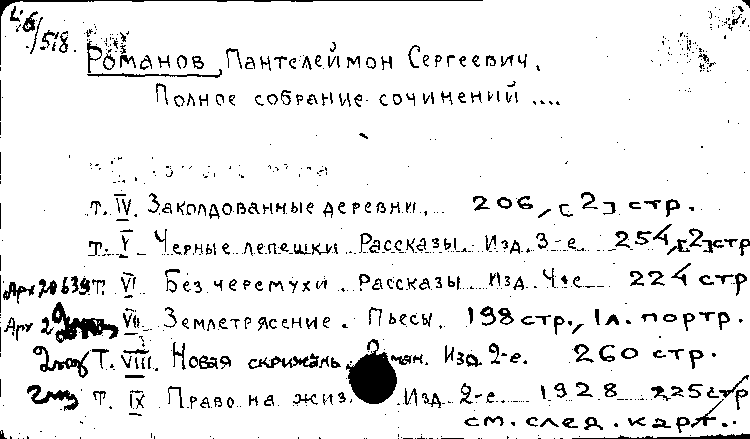 518. Романов, Пантелеймон Сергеевич.
Полное собрание сочинений ....
т. IV. Заколдованные деревни. 206, [2] стр.
т. V Черные лепешки Рассказы. Изд. 3-е. 254, [2] стр
Арх 20639 т. VI Без черемухи. Рассказы Изд. 4-е 224 стр
Арх т. VII Землетрясение. Пьесы. 198 стр., 1 л. портр.
2 экз Т. VIII. Новая скрижаль. Изд. 2-е. 260 стр.
2 экз т. IX Право на жиз Изд 2-е. 1928 225 стр
см. след. карт..